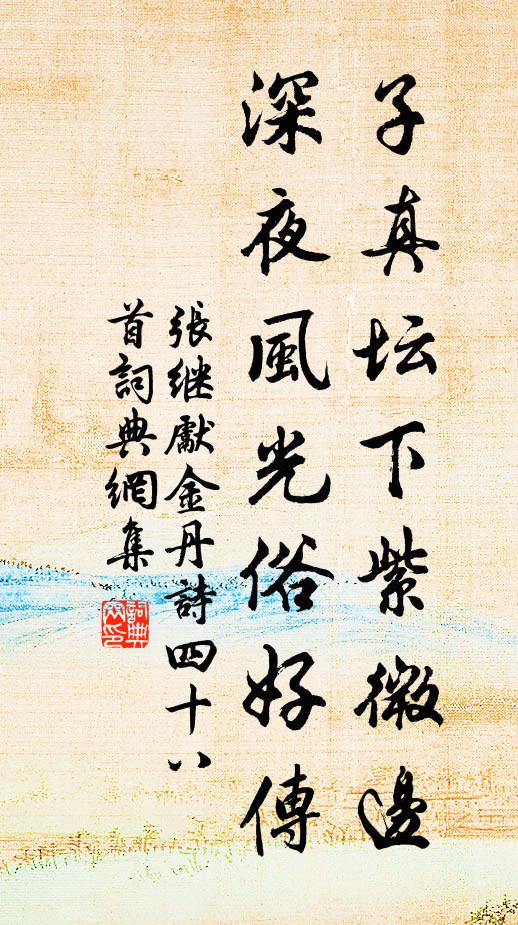 子真坛下紫微邊
深夜風光俗好傳
張继獻金丹詩四十八
首詞典網集
詞典